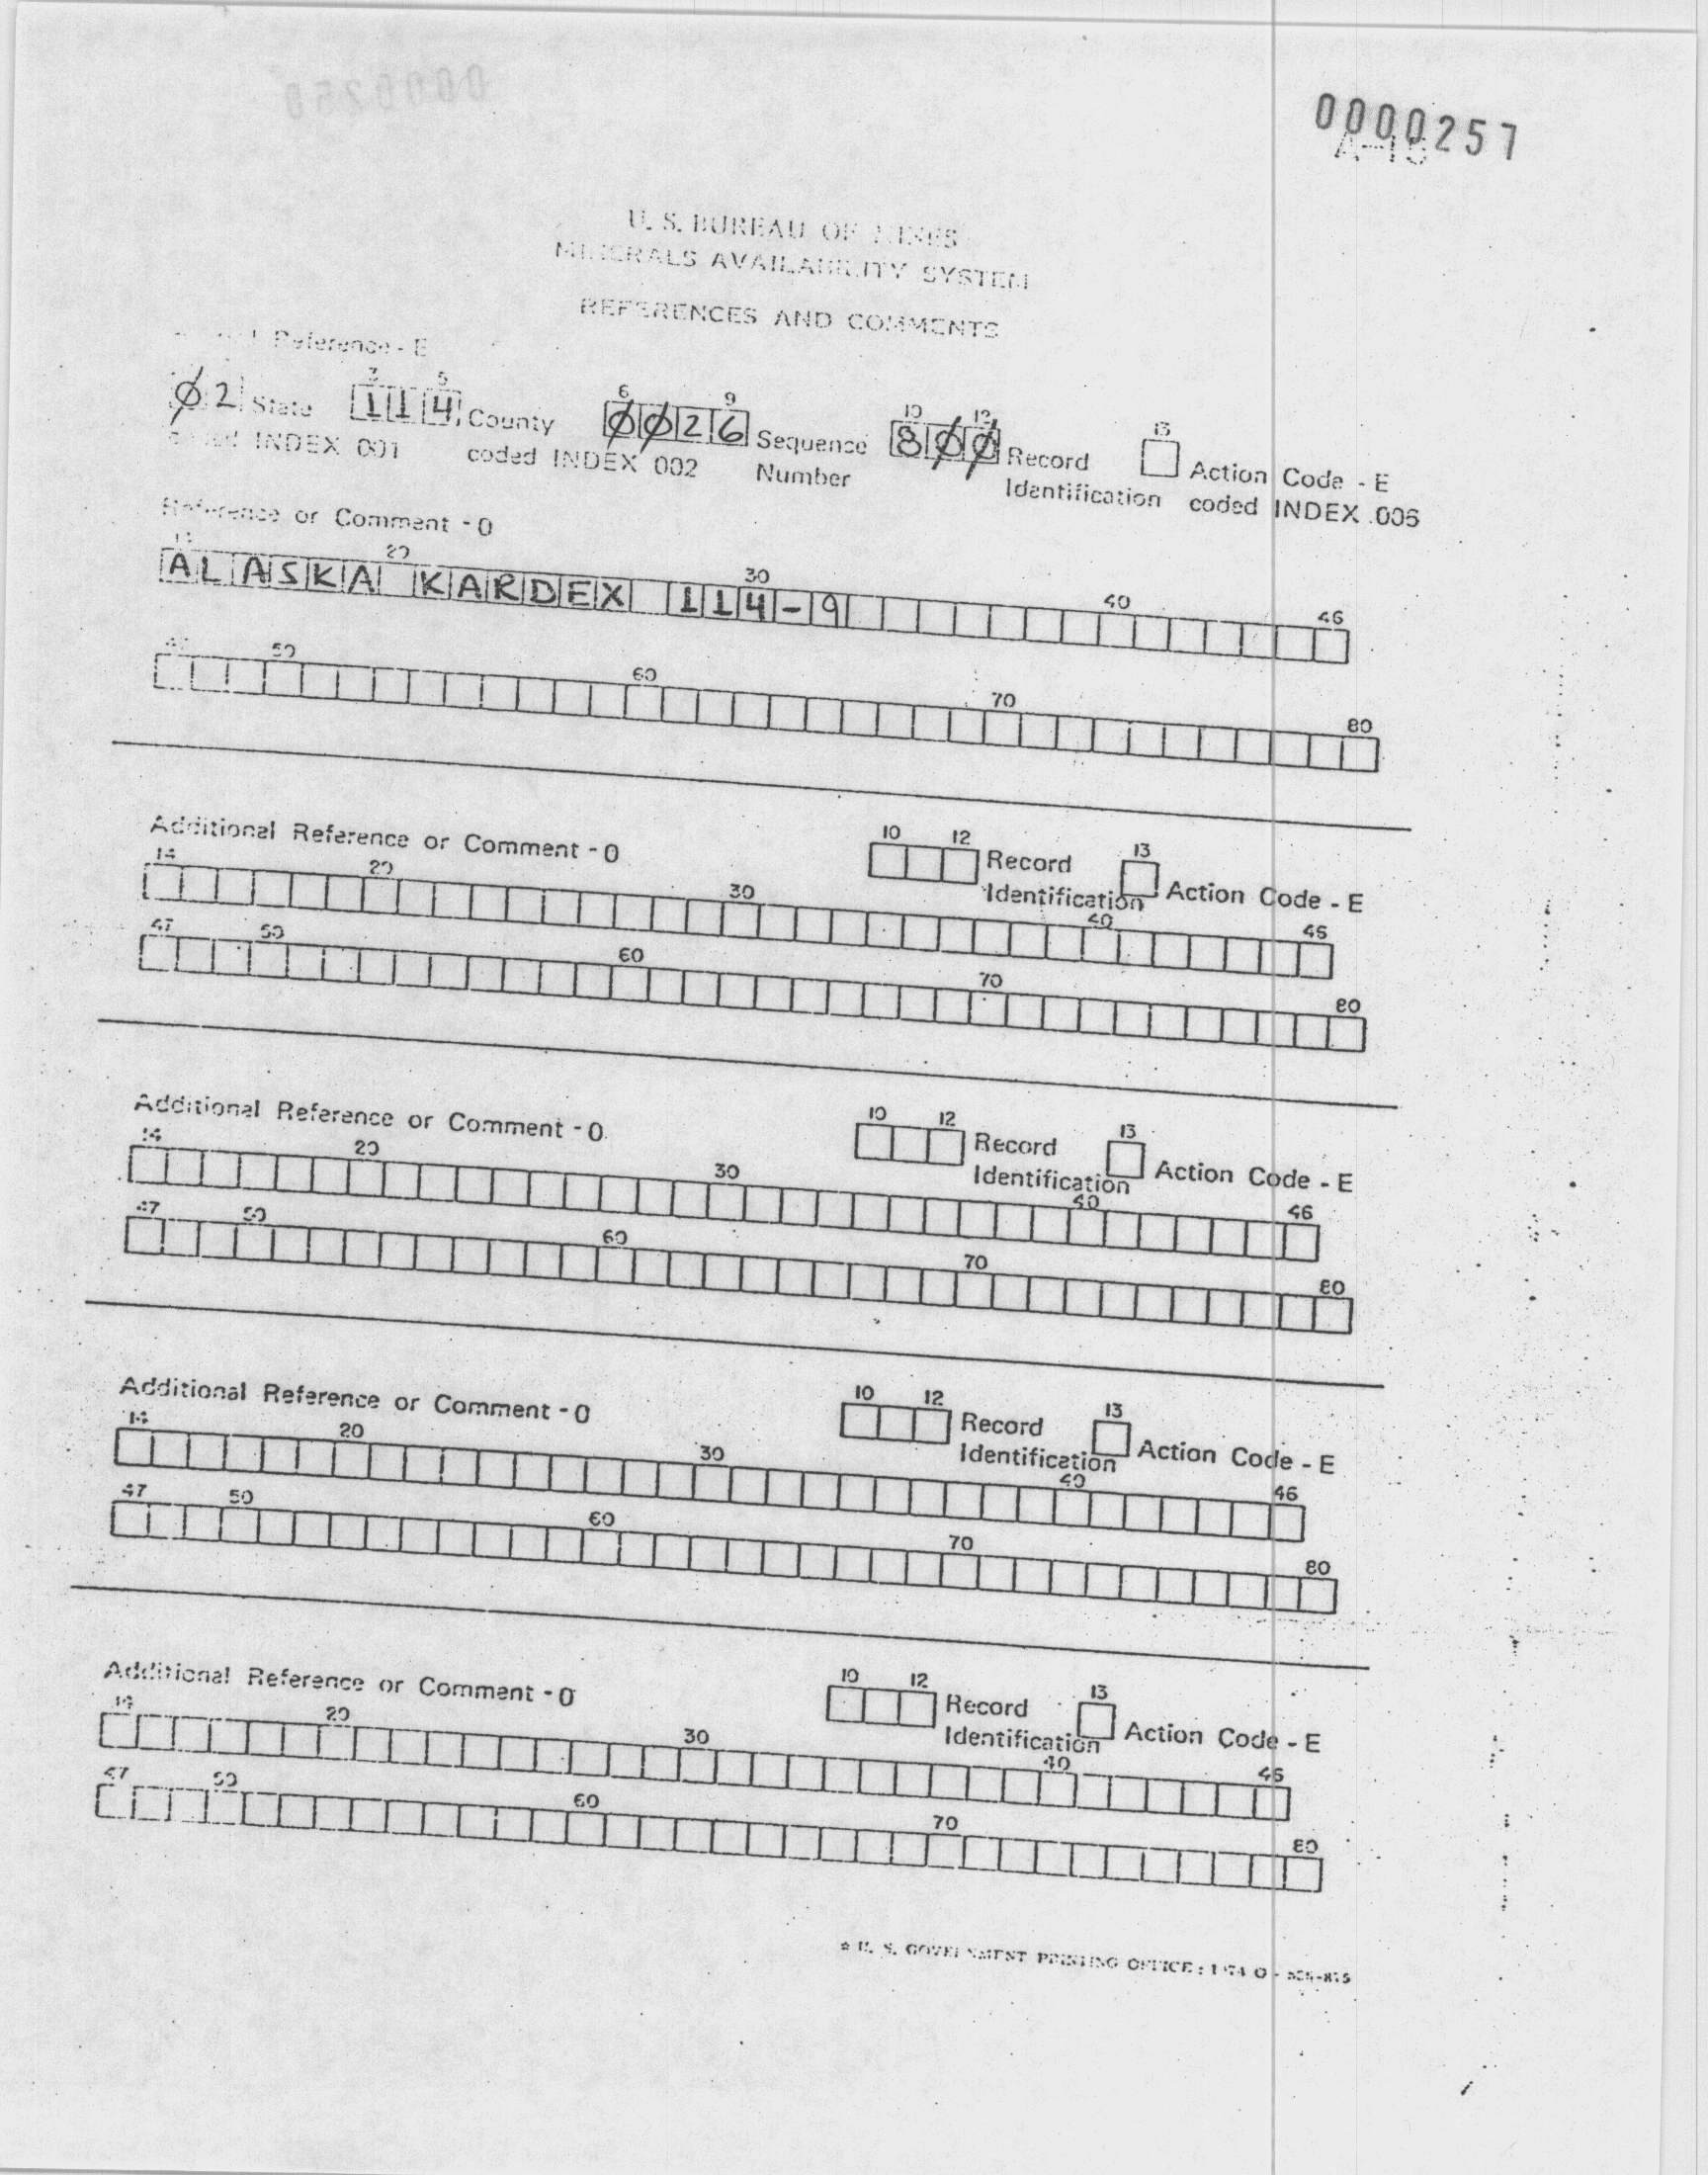 0000257
A-15
U. S. BUREAU OF MINES
MINERALS AVAILABILITY SYSTEM
REFERENCES AND COMMENTS
Reference - E
3 5 6 9 10 12 13
Ø2 State 114 County ØØ26 Sequence 8ØØ Record Action Code - E
coded INDEX 001 coded INDEX 002 Number Identification coded INDEX 006
Reference or Comment - O
20 30 40 46
ALASKA KARDEX 114-9
47 50 60 70 80
Additional Reference or Comment - O 10 12 Record 13 Action Code - E
Identification
14 20 30 40 46
47 50 60 70 80
Additional Reference or Comment - O 10 12 Record 13 Action Code - E
Identification
14 20 30 40 46
47 50 60 70 80
Additional Reference or Comment - O 10 12 Record 13 Action Code - E
Identification
14 20 30 40 46
47 50 60 70 80
Additional Reference or Comment - O 10 12 Record 13 Action Code - E
Identification
14 20 30 40 46
47 50 60 70 80
☆ U. S. GOVERNMENT PRINTING OFFICE : 1974 O -